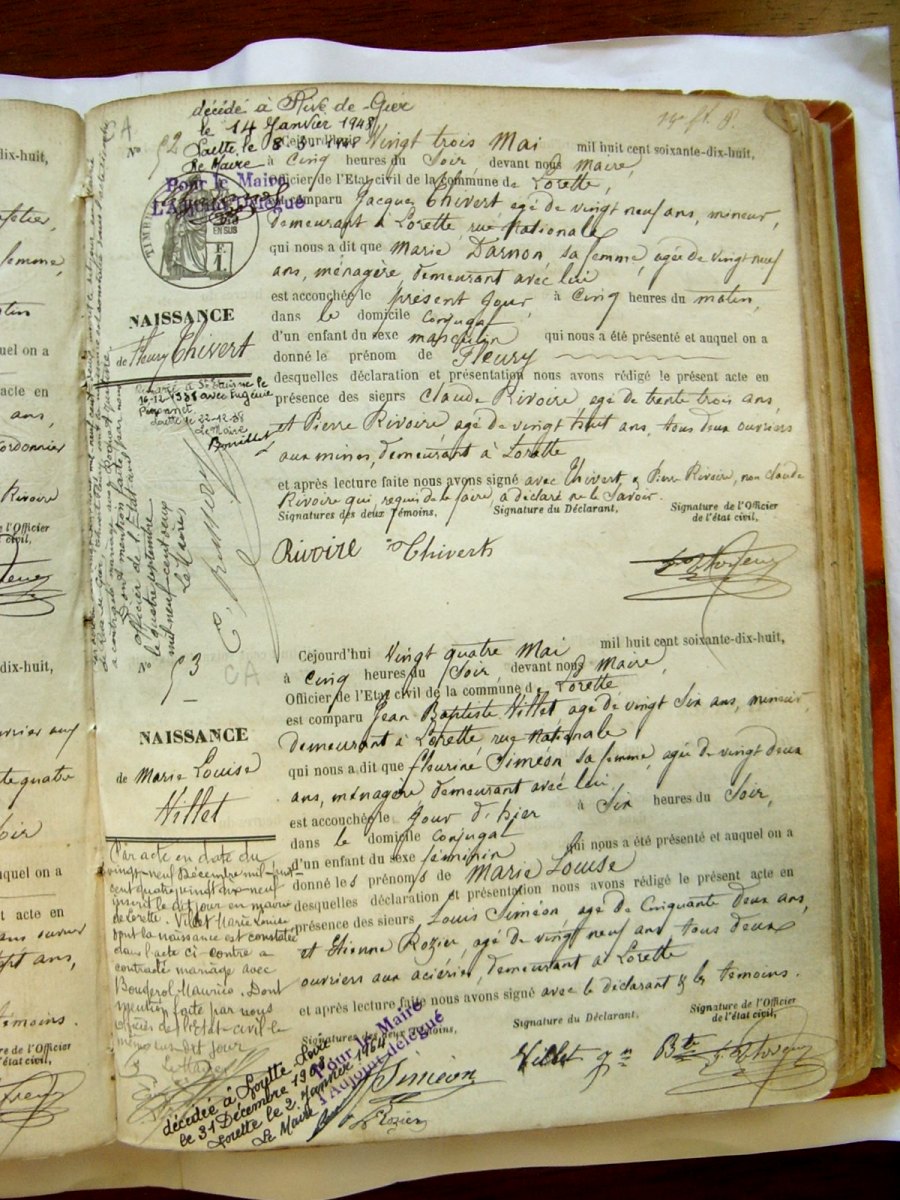 décédé à Rive-de-Gier
le 14 Janvier 1948
Lorette le
Le Maire
Pour le Maire
L'Adjoint Délégué
N° 52
CA
Cejourd'hui Vingt trois Mai mil huit cent soixante-dix-huit,
à Cinq heures du Soir devant nous Maire,
Officier de l'Etat civil de la commune de Lorette,
est comparu Jacques Thivert agé de vingt neuf ans, mineur,
demeurant à Lorette rue Nationale
qui nous a dit que Marie Darnon, sa femme, agée de vingt neuf
ans, ménagère demeurant avec lui
est accouchée le présent Jour, à Cinq heures du matin,
dans le domicile conjugal
d'un enfant du sexe masculin qui nous a été présenté et auquel on a
donné le prénom de Fleury
desquelles déclaration et présentation nous avons rédigé le présent acte en
présence des sieurs Claude Rivoire agé de trente trois ans,
et Pierre Rivoire agé de vingt huit ans, tous deux ouvriers
aux mines, demeurant à Lorette
et après lecture faite nous avons signé avec Thivert, & Pierre Rivoire, non Claude
Rivoire qui requis de le faire, a déclaré ne le Savoir.
Signatures des deux Témoins, Signature du Déclarant, Signature de l'Officier
de l'état civil,
Rivoire Thivert
TIMBRE
EN SUS
F.
1.
NAISSANCE
de Fleury Thivert
Marié à St Etienne le
16-12-1938 avec Eugénie
Lorette le 22-12-38
Le Maire
a contracté mariage avec
Dont mention faite par nous
Officier de l'Etat-civil
le quatre septembre
mil neuf cent deux
Le Maire
N° 53
CA
Cejourd'hui Vingt quatre Mai mil huit cent soixante-dix-huit,
à Cinq heures du Soir, devant nous Maire
Officier de l'Etat civil de la commune de Lorette
est comparu Jean Baptiste Villet agé de vingt Six ans, mineur,
demeurant à Lorette rue Nationale
qui nous a dit que fleurine Siméon sa femme, agée de vingt deux
ans, ménagère demeurant avec lui
est accouchée le Jour d'hier à Six heures du Soir,
dans le domicile conjugal
d'un enfant du sexe féminin qui nous a été présenté et auquel on a
donné les prénoms de Marie Louise
desquelles déclaration et présentation nous avons rédigé le présent acte en
présence des sieurs Louis Siméon, agé de Cinquante deux ans,
et Etienne Rozier, agé de vingt neuf ans, tous deux
ouvriers aux aciéries, demeurant à Lorette
et après lecture faite nous avons signé avec le déclarant & les témoins.
Signatures des deux Témoins, Signature du Déclarant, Signature de l'Officier
de l'état civil,
Siméon Villet Jn Bte
Rozier
NAISSANCE
de Marie Louise
Villet
Par acte en date du
vingt-neuf Décembre mil-huit-
cent quatre vingt dix-neuf
inscrit le dit jour en mairie
de Lorette. Villet Marie Louise
dont la naissance est constatée
dans l'acte ci-contre a
contracté mariage avec
Bougerol Maurice. Dont
mention faite par nous
officier de l'Etat-civil le
même dit jour
Le Maire
décédée à Lorette Loire
le 31 Décembre
Lorette le 2 Janvier 1964
Le Maire
Pour le Maire
l'Adjoint délégué
dix-huit,
femme,
quel on a
acte en
ans,
cordonnier
Rivoire
re de l'Officier
état civil,
dix-huit,
te quatre
auquel on a
t acte en
ans,
témoins.
re de l'Officier
état civil,